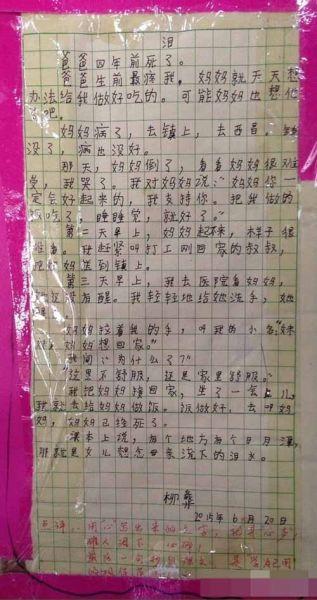 泪
爸爸四年前死了。
爸爸生前最疼我，妈妈就天天想
办法给我做好吃的。可能妈妈也想他
了吧。
妈妈病了，去镇上，去西昌，钱
没了，病也没好。
那天，妈妈倒了，看着妈妈很难
受，我哭了。我对妈妈说：“妈妈你一
定会好起来的，我支持你。把我做的
饭吃了，睡睡觉，就好了。”
第二天早上，妈妈起不来，样子很
难看。我赶紧叫打工刚回家的叔叔，
把妈妈送到镇上。
第三天早上，我去医院看妈妈，
她还没有醒。我轻轻地给她洗手，她
醒
妈妈拉着我的手，叫我的小名“妹
妹，妈妈想回家。”
我问：“为什么了？”
“这里不舒服，还是家里舒服。”
我把妈妈接回家，坐了一会儿，
我就去给妈妈做饭。饭做好，去叫妈
妈，妈妈已经死了。
课本上说，有个地方有个日月潭，
那就是女儿想念母亲流下的泪水。
柳彝
2015年6月20日
点评：用心写出来的